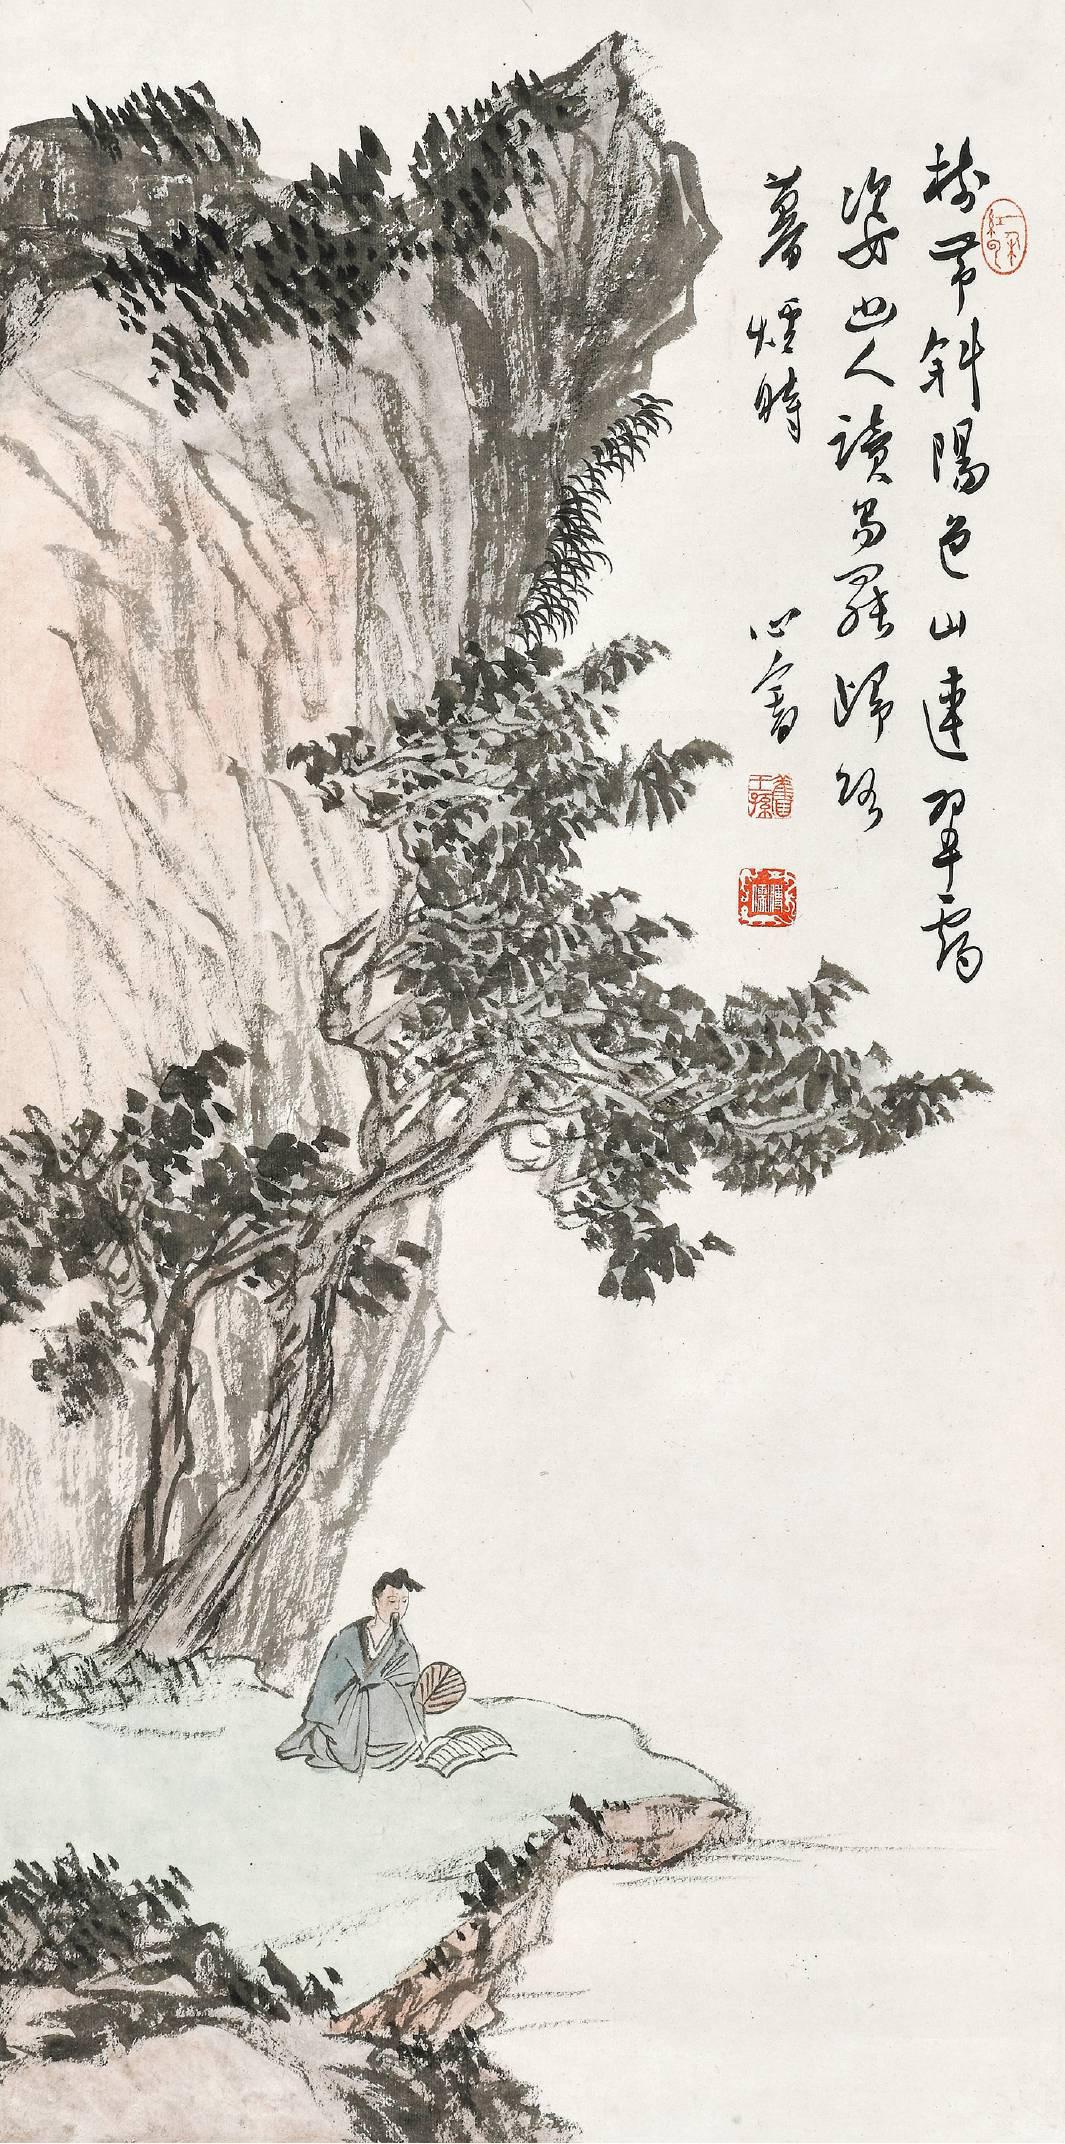 樹帶斜陽色山連翠靄
姿幽人讀易罷歸路
暮煙時
心畬
舊王孫
溥儒